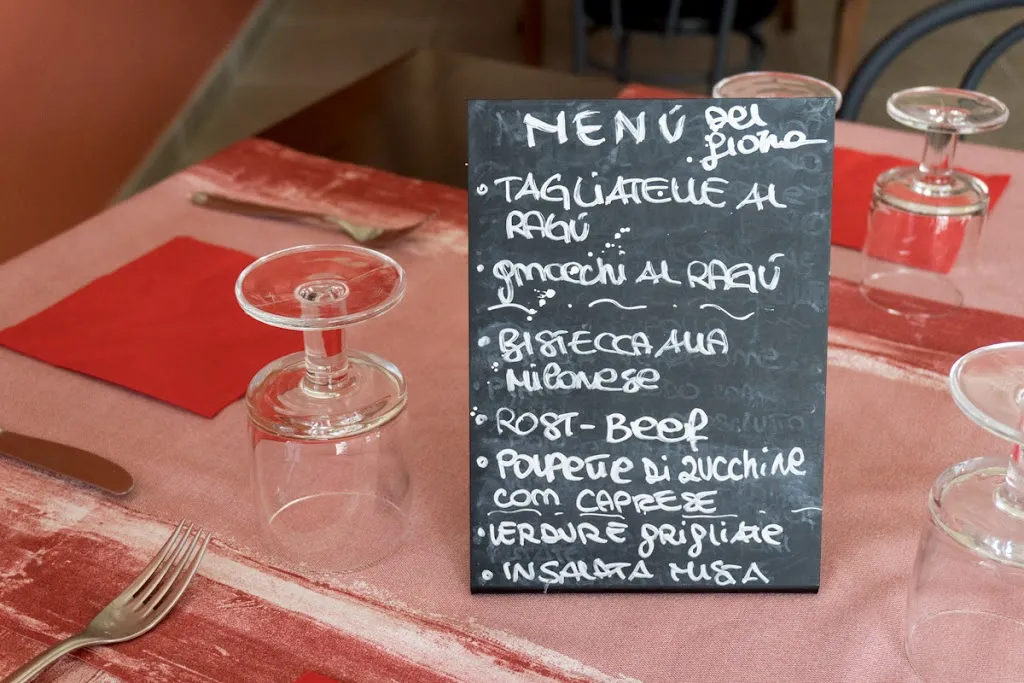 MENÚ DEL
giorno
• TAGLIATELLE AL
RAGÚ
• gnocchi AL RAGÚ
• BISTECCA ALLA
Milanese
• ROST-Beef
• POLPETTE DI ZUCCHINE
con CAPRESE
• VERDURE grigliate
• INSALATA MISTA